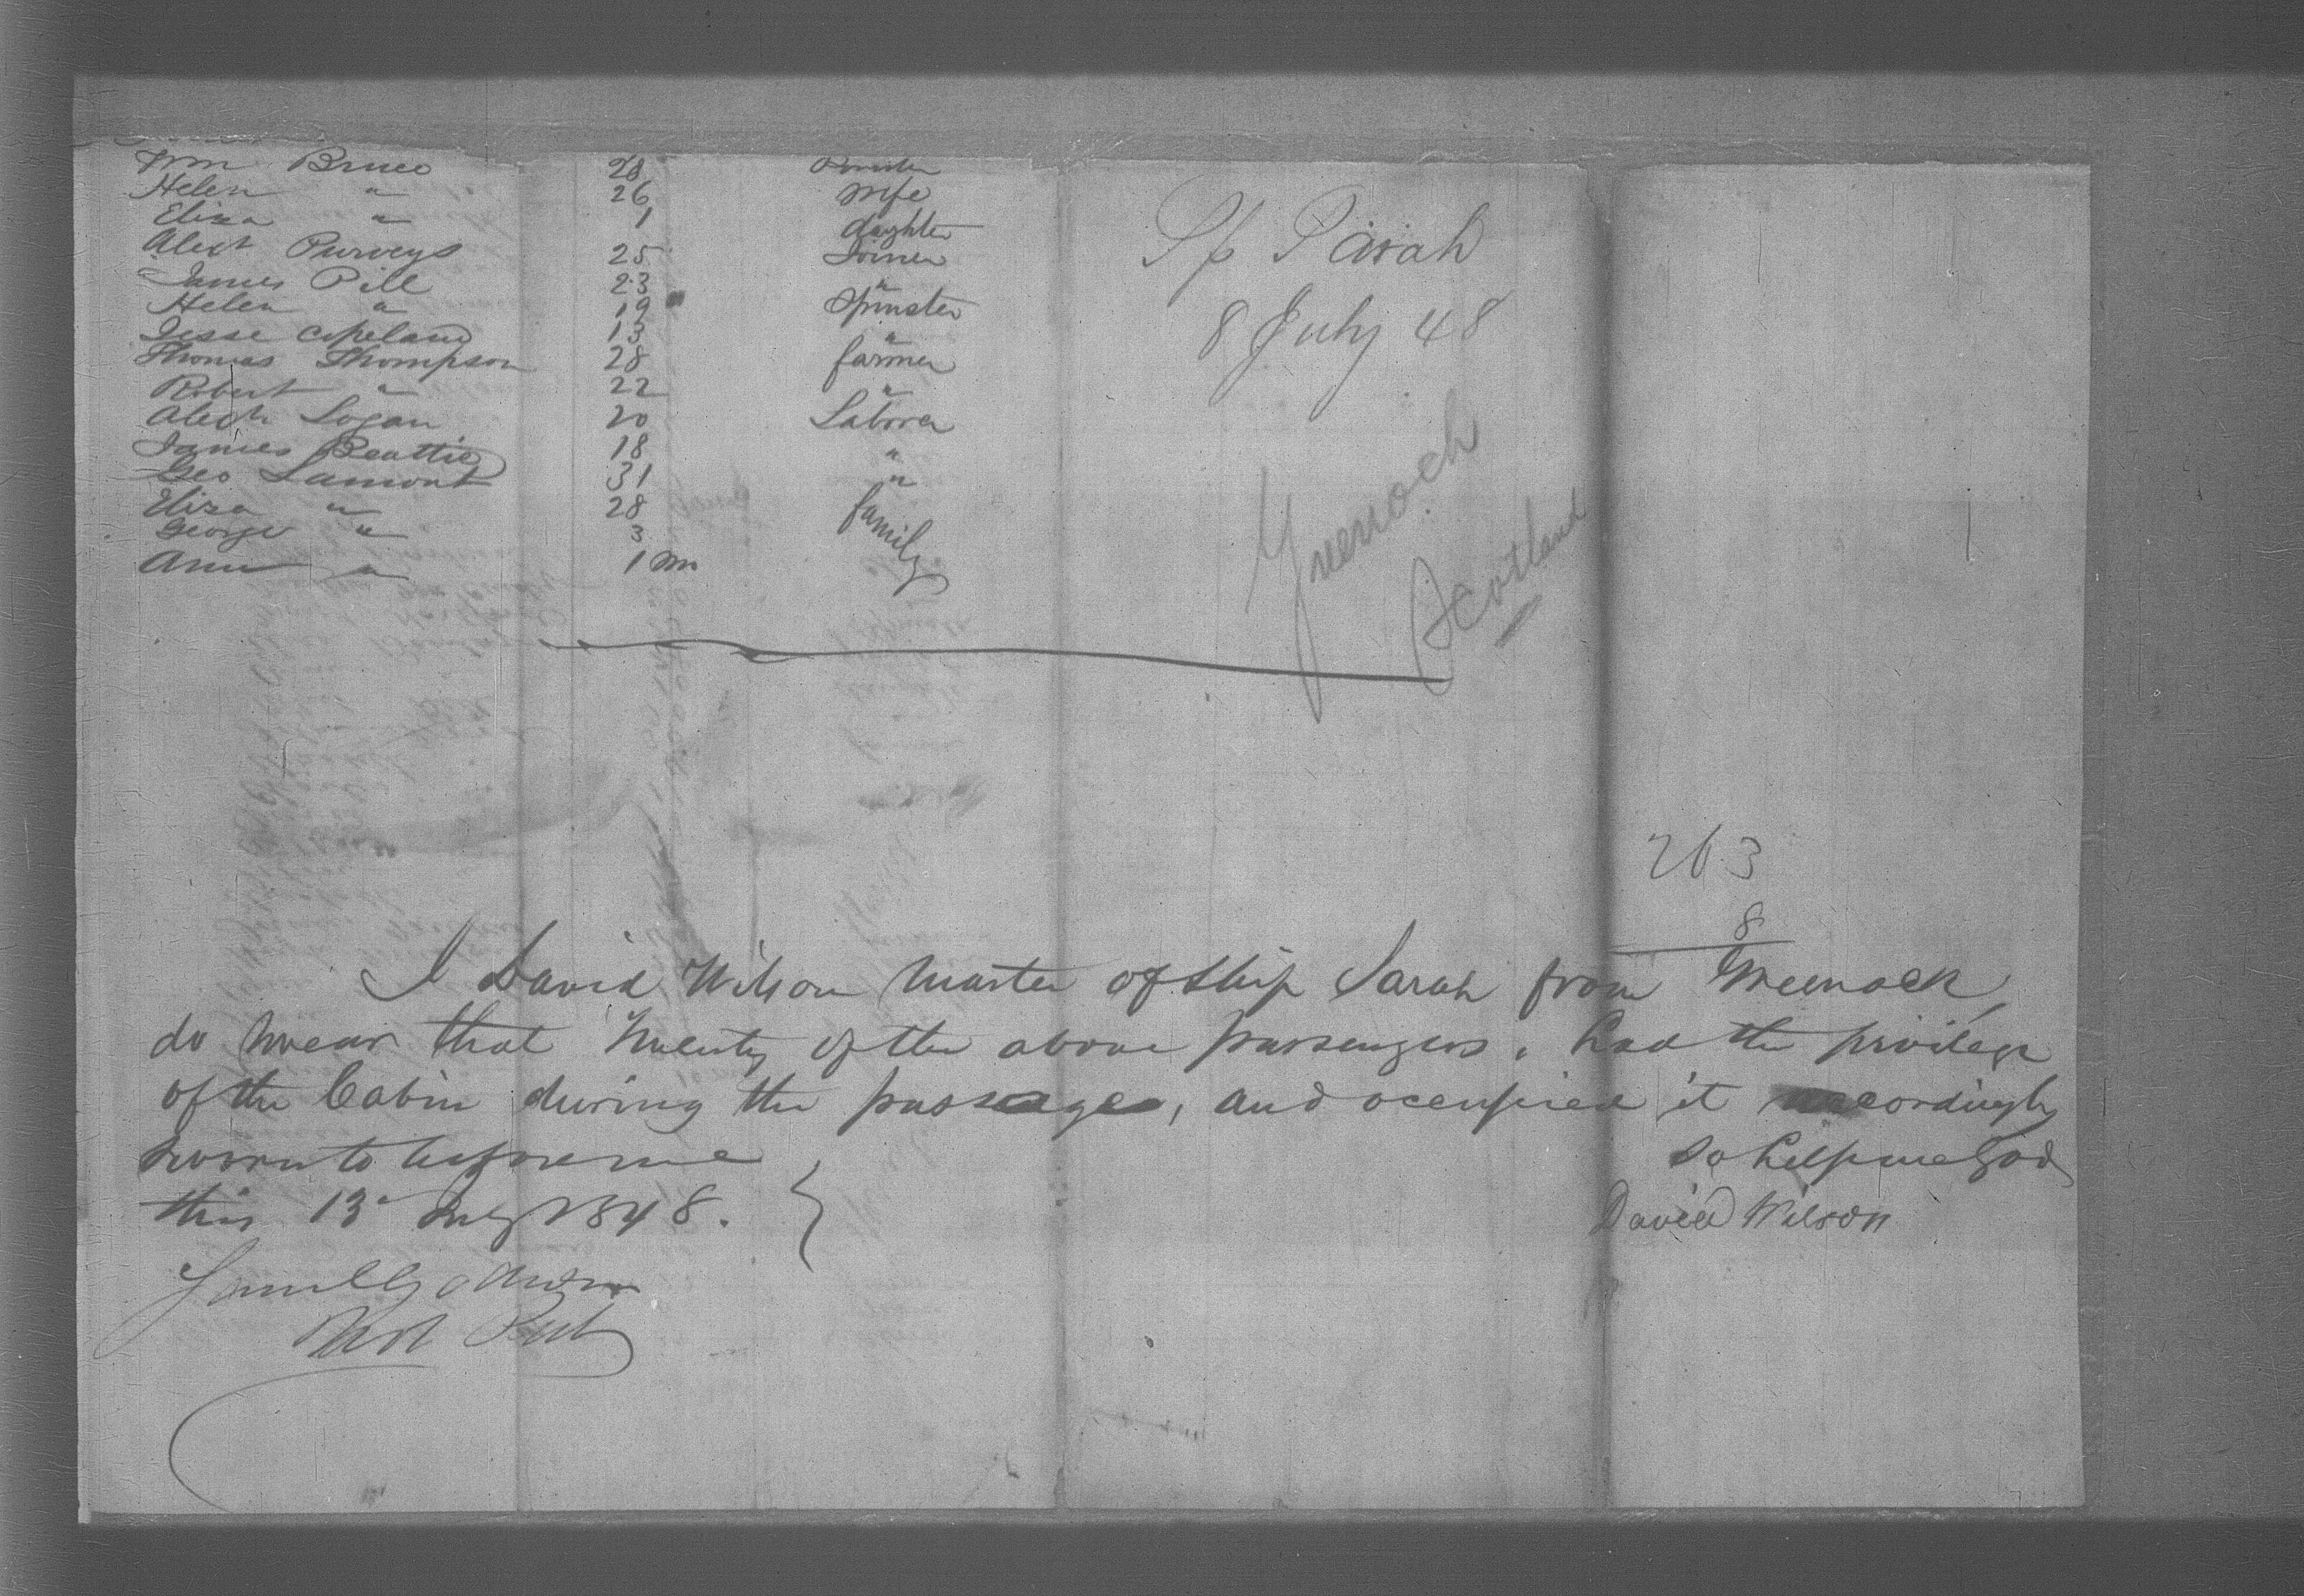 Wm Bruce 28
Helen " 26 Wife
Eliza " 1 daughter
Alexr Purveys 25 Joiner
James Pill 23 "
Helen " 19 Spinster
Jesse Copeland 13 "
Thomas Thompson 28 farmer
Robert " 22 "
Alexr Logan 20 Laborer
James Beattie 18 "
Geo Lamont 31 "
Eliza " 28 family
George " 3
Ann " 1 m
Sp Sarah
8 July 48
Greenock
Scotland
263
8
I David Wilson Master of Ship Sarah from Greenock,
do swear that twenty of the above passengers, had the privilege
of the Cabin during the passage, and occupied it accordingly
So help me God
Sworn to before me
this 13 July 1848.
David Wilson